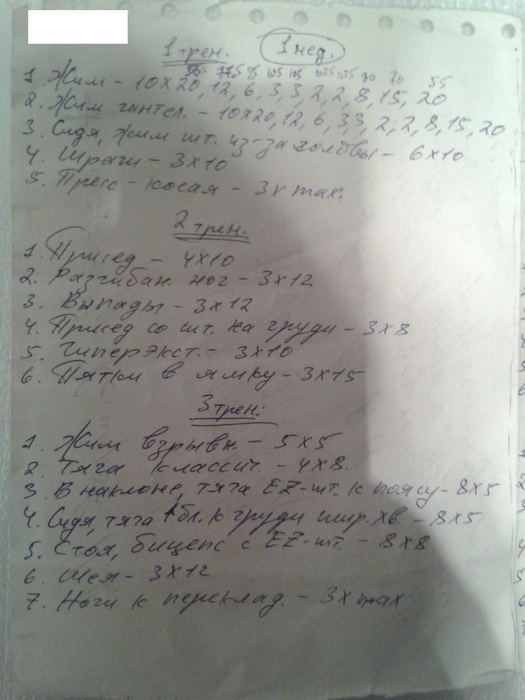 1 трен. 1 нед.
105 105 90 70 55
1. Жим – 10х20, 12, 6, 3, 3, 2, 2, 8, 15, 20
2. Жим гантел. – 10х20, 12, 6, 3,3, 2, 2, 8, 15, 20
3. Сидя, жим шт. из-за головы – 6х10
4. Шраги – 3х10
5. Пресс – косая – 3х max.
2 трен.
1. Присед – 4х10
2. Разгибан. ног – 3х12
3. Выпады – 3х12
4. Присед со шт. на груди – 3х8
5. Гиперэкст. – 3х10
6. Пятки в ямку – 3х15
3 трен:
1. Жим взрывн. – 5х5
2. Тяга классич. – 4х8.
3. В наклоне, тяга EZ-шт. к поясу – 8х5
4. Сидя, тяга бл. к груди шир. хв. – 8х5
5. Стоя, бицепс с EZ-шт. – 8х8
6. Шея – 3х12
7. Ноги к переклад. – 3х max